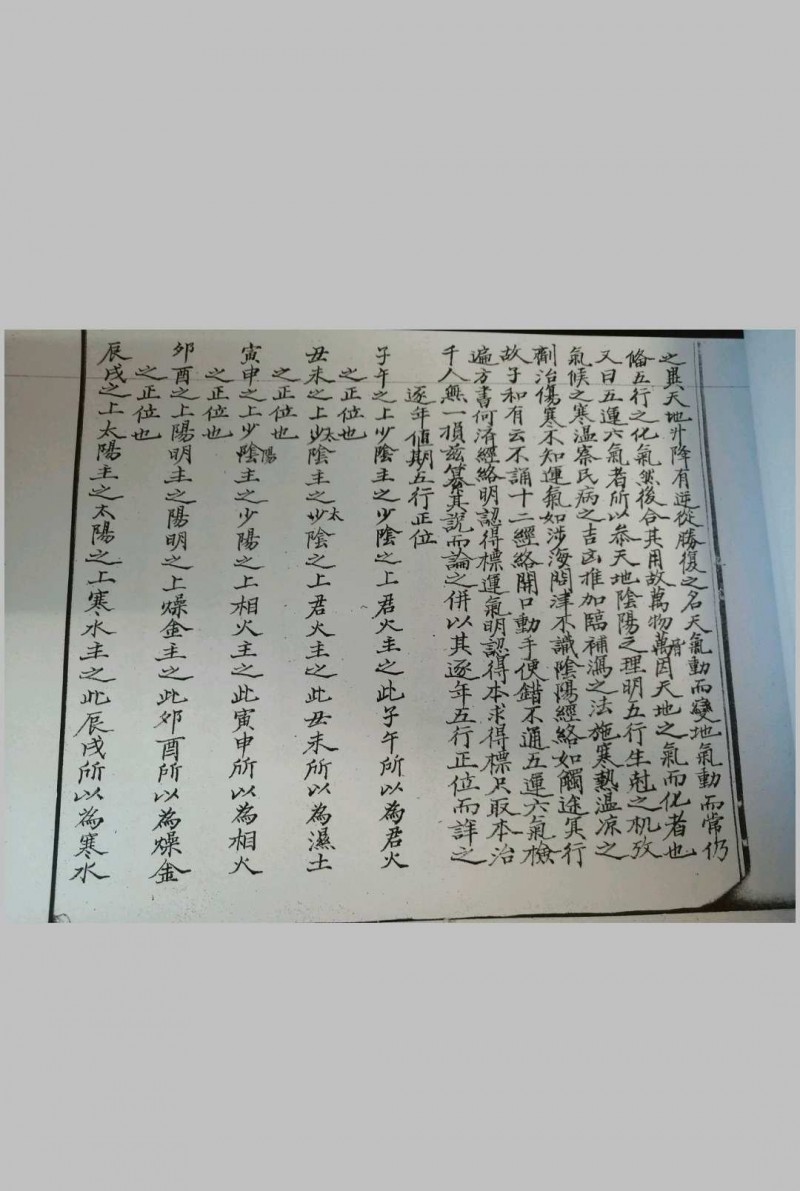 之異天地升降有逆從勝復之名天氣動而變地氣動而常仍
俻五行之化氣然後合其用故萬物萬有因天地之氣而化者也
又曰五運六氣者所以叅天地陰陽之理明五行生尅之机攷
氣候之寒温察民病之吉凶推加臨補瀉之法施寒熱温凉之
劑治傷寒不知運氣如涉海問津不識陰陽經絡如觸途冥行
故子和有云不誦十二經絡開口動手便錯不通五運六氣檢
遍方書何済經絡明認得標運氣明認得本求得標只取本治
千人無一損兹纂其說而論之併以其逐年五行正位而詳之
逐年值期五行正位
子午之上少陰主之少陰之上君火主之此子午所以為君火
之正位也
丑未之上少太陰主之少太陰之上君火主之此丑未所以為濕土
之正位也
寅申之上少陰陽主之少陽之上相火主之此寅申所以為相火
之正位也
夘酉之上陽明主之陽明之上燥金主之此夘酉所以為燥金
之正位也
辰戌之上太陽主之太陽之上寒水主之此辰戌所以為寒水